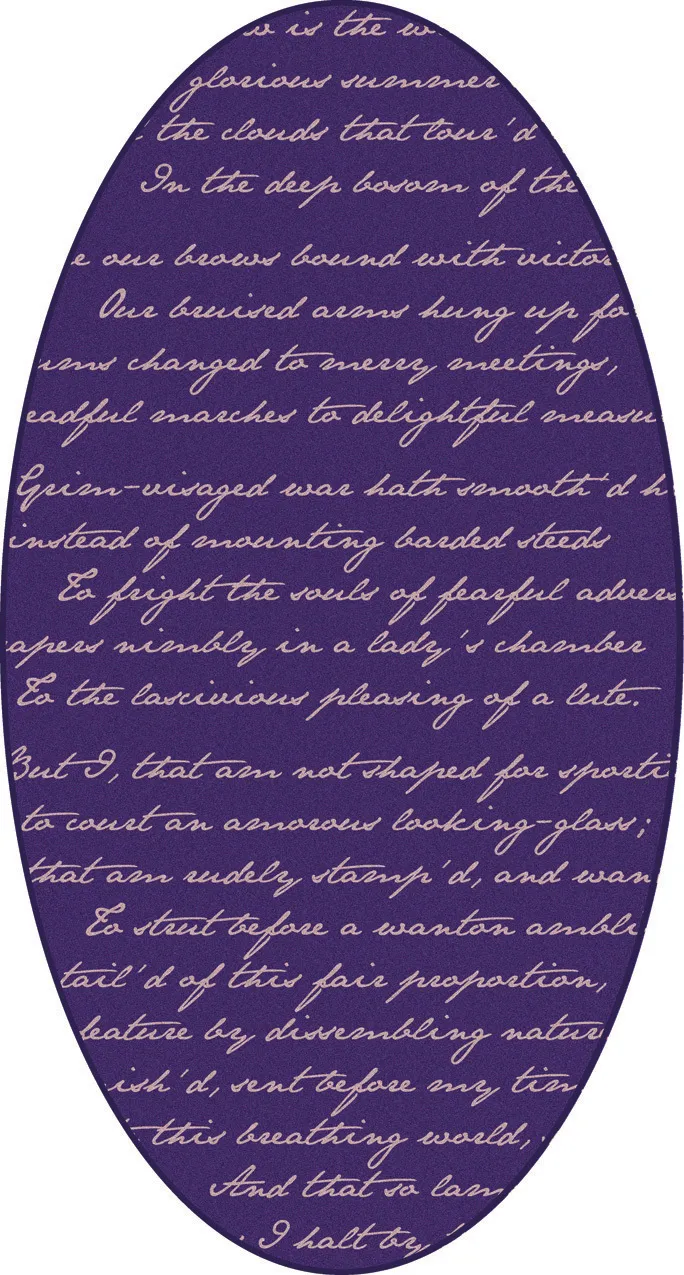 is the
glorious summer
the clouds that lour'd
In the deep bosom of the
our brows bound with victor
Our bruised arms hung up fo
ums changed to merry meetings,
eadful marches to delightful measu
Grim-visaged war hath smooth'd h
instead of mounting barded steeds
To fright the souls of fearful advers
apers nimbly in a lady's chamber
To the lascivious pleasing of a lute.
But I, that am not shaped for sporti
to court an amorous looking-glass;
that am rudely stamp'd, and wan
To strut before a wanton ambli
tail'd of this fair proportion,
eature by dissembling nature
ish'd, sent before my tim
this breathing world,
And that so lam
I halt by